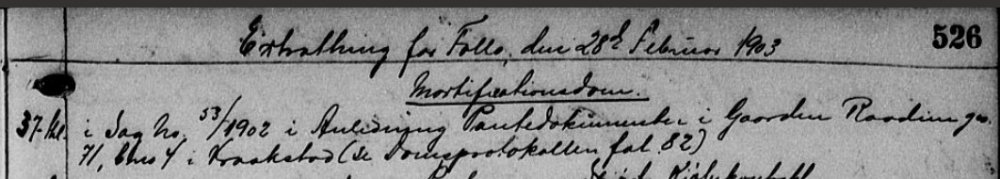 Extrathing for Follo, den 28d Februar 1903
526
Mortifikationsdom.
i Sag No. 53/1902 i Anledning Pantedokumenter i Gaarden Raadim gn.
71, bno 4 i Kraakstad (se Domsprotokollen fol. 82)
Kjøbekontrakt